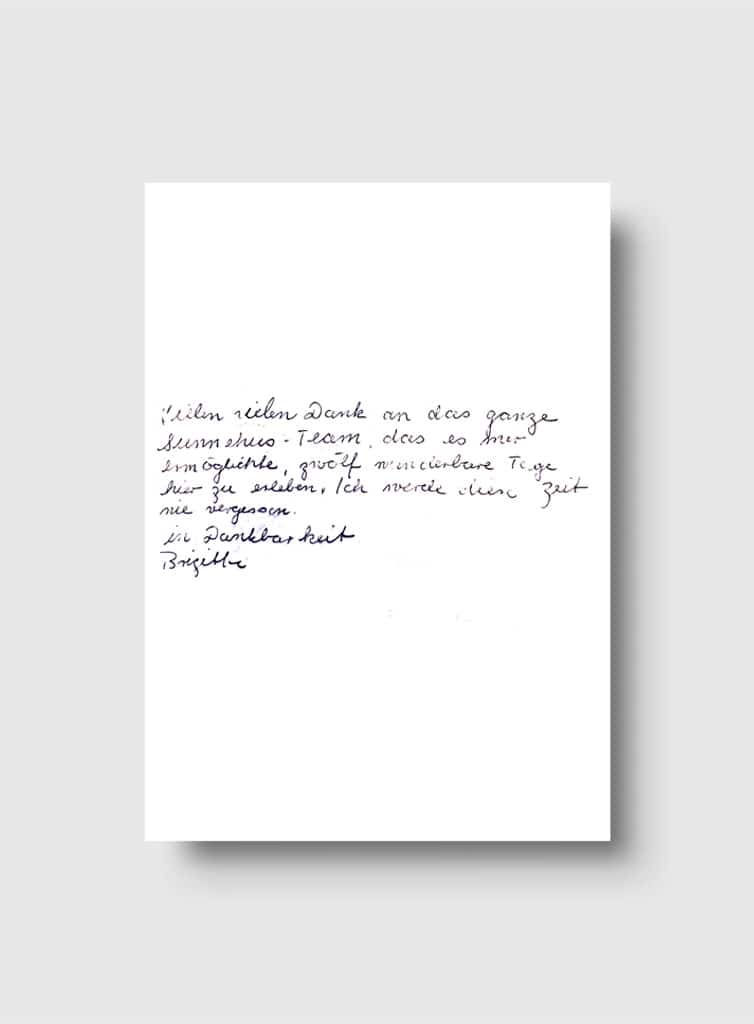 Vielen vielen Dank an das ganze
Sunnehus-Team, das es mir
ermöglichte, zwölf wunderbare Tage
hier zu erleben. Ich werde diese Zeit
nie vergessen.
in Dankbarkeit
Brigitte